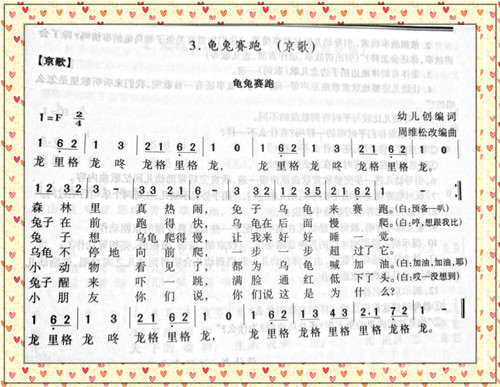 3. 龟兔赛跑 (京歌)
【京歌】
龟兔赛跑
1=F 2/4
幼儿创编词
周维松改编曲
1 62 | 1 3 | 21 61 62 | 1 0 | 1 62 | 1 3 | 21 62 | 1 0 |
龙 里格 龙 咚 龙格 里格 龙, 龙 里格 龙 咚 龙格 里格 龙。
12 32 | 3 - | 33 21 | 6 - | 3 32 | 12 35 | 21 62 | 1 - :|
森林里 真热闹, 兔子乌龟来赛跑。(白:预备—叭)
兔子在前 跑得快, 乌龟在后面慢慢爬。(白:哼,想跟我比)
兔子想 乌龟爬得慢, 让我来好好睡一觉。
乌龟不停地向前爬, 一步一步超过了它。
小动物 看见了, 都为乌龟喊加油。(白:加油,加油,耶)
兔子醒来 吓一跳, 满脸通红低下了头。(白:哎—没想到)
小朋友 你们说, 你们说这是为什么?
1 62 | 1 3 | 21 62 | 1 0 | 1 62 | 14 13 | 43 21 72 | 1 - |
龙 里格 龙 咚 龙格 里格 龙, 龙 里格 龙格 里格 龙格 里格 龙格 里格 龙。